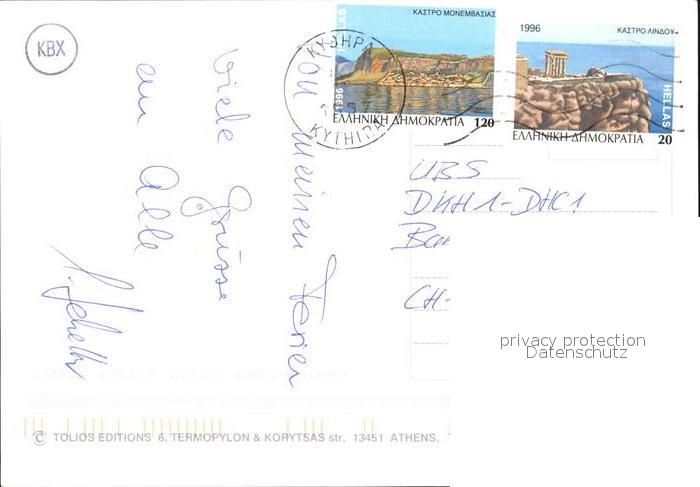 KBX
ΚΑΣΤΡΟ ΜΟΝΕΜΒΑΣΙΑΣ
1996 HELLAS
ΕΛΛΗΝΙΚΗ ΔΗΜΟΚΡΑΤΙΑ 120
1996
ΚΑΣΤΡΟ ΛΙΝΔΟΥ
HELLAS
ΕΛΛΗΝΙΚΗ ΔΗΜΟΚΡΑΤΙΑ 20
ΚΥΘΗΡΑ
KYTHIRA
von meinen Ferien
viele Grüsse
an Alle
UBS
DKH1-DHC1
CH-
privacy protection
Datenschutz
© TOLIOS EDITIONS 6, TERMOPYLON & KORYTSAS str, 13451 ATHENS,